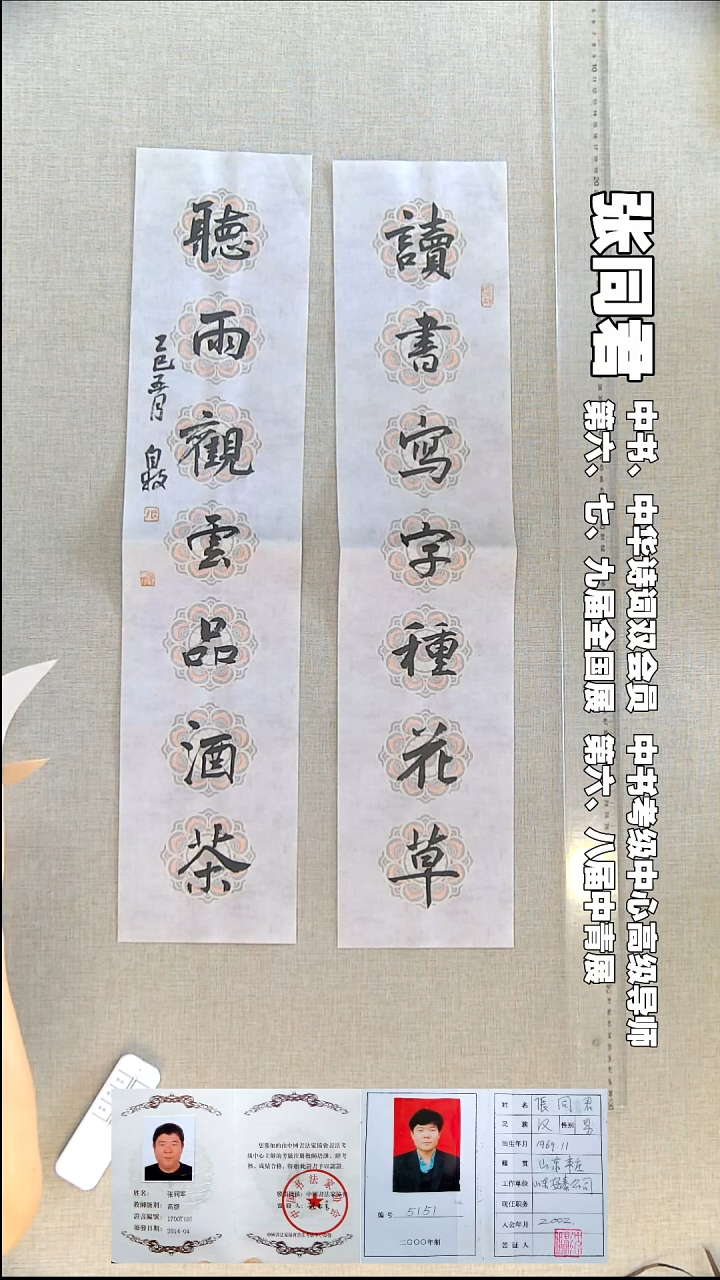 讀書寫字種花草
聽雨觀雲品酒茶
乙巳五月
张同君
中书、中华诗词双会员 中书考级中心高级导师
第六、七、九届全国展 第六、八届中青展
姓名：张同军
教師級別：高級
證書編號：
簽發日期：2014-04
編号 5151
二〇〇〇年制
姓名 張同君
民族 汉 性别 男
出生年月 1969.11
籍貫 山东
工作单位
现任职务
入会年月 2002.
签证人